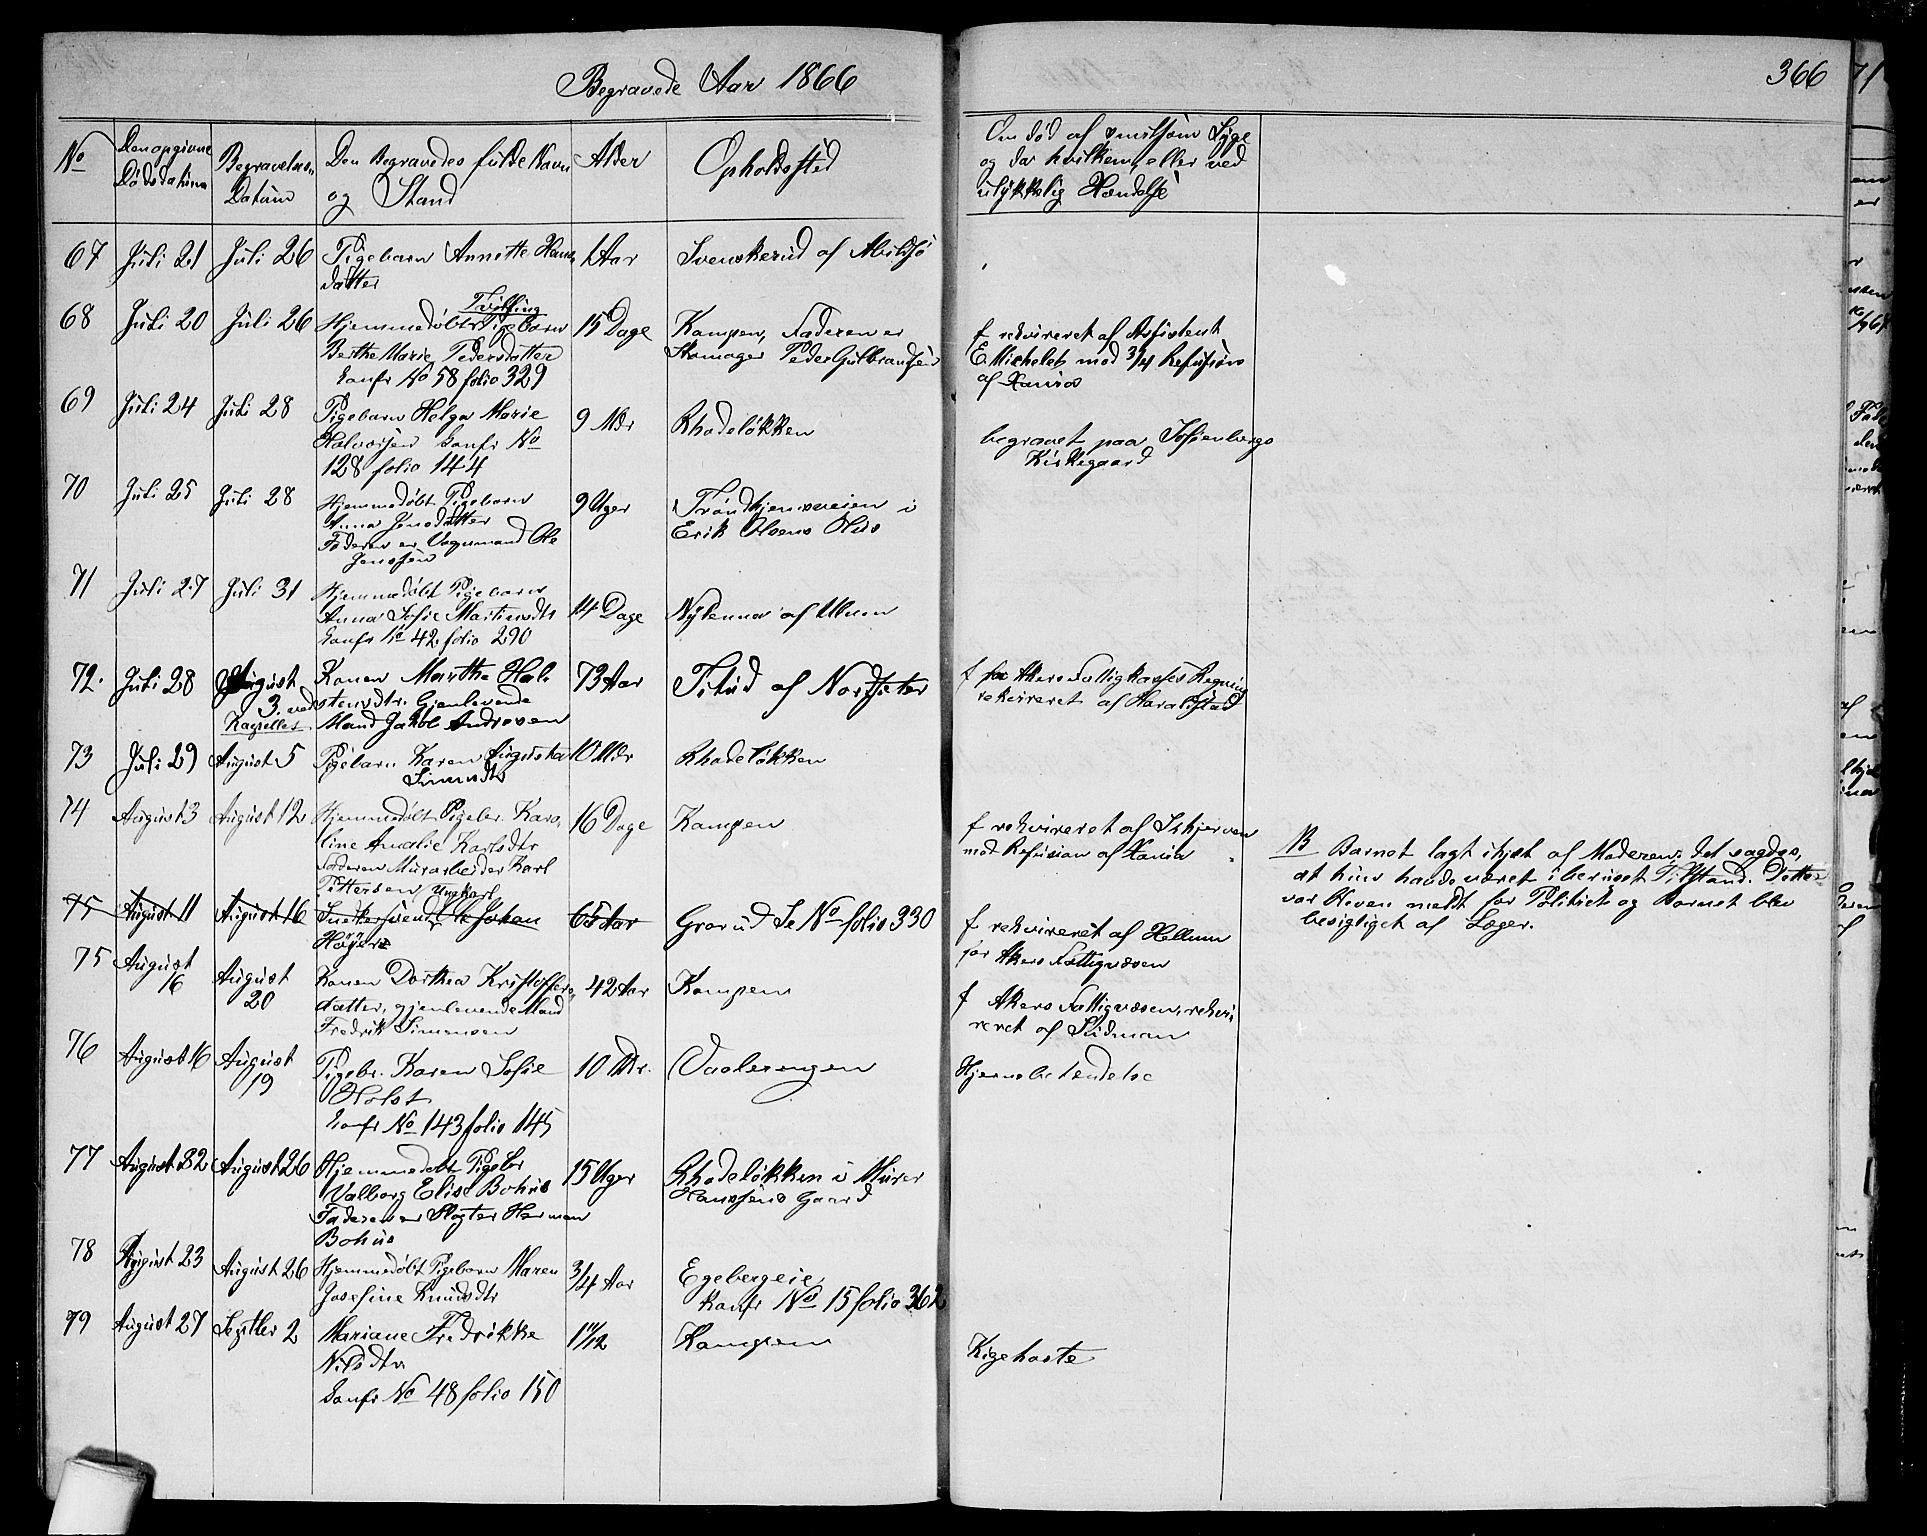 Begravede Aar 1866
366
No
Den opgivne Dødsdatum
Begravelses Datum
Den Begravedes fulde Navn og Stand
Alder
Opholdssted
Om død af smitsom Syge og da hvilken, eller ved ulykkelig Hændelse
67 Juli 21 Juli 26 Pigebarn Annette Hans 1 Aar Svenskerud af
datter
Tvilling
68 Juli 20 Juli 26 Hjemmedøbt Pigebarn 15 Dage Kampen, Faderen er
Berthe Marie Pedersdatter Skomager Peder Gulbrandsen
Confr No 58 folio 329
f rekvireret af Assistent
E. Michelet mod 3/4 Refusion
af Xania
69 Juli 24 Juli 28 Pigebarn Helga Marie 9 Mdr Rhodeløkken
Halvorsen Confr No
128 folio 144
begravet paa Sofienbergs
Kirkegaard
70 Juli 25 Juli 28 Hjemmedøbt Pigebarn 9 Uger Trondhjemsveien i
Anna Jensdatter Erik Olsens Hus
Faderen er Vognmand Ole
Jenssen
71 Juli 27 Juli 31 Hjemmedøbt Pigebarn 14 Dage Nylenna af Ulven
Anna Sofie Martinsdtr
Confr No 42 folio 290
72. Juli 28 August Konen Marthe Hal 73 Aar af Nordseter
3. ved stensdtr. Gjenlevende
Kapellet Mand Jakob Andresen
f for Akers Fattigkasses Regning
rekvireret af Haralstad
73 Juli 29 August 5 Pigebarn Karen Augusta 10 Mdr Rhodeløkken
Simensdtr
74 August 3 August 12 Hjemmedøbt Pigebr. Karo 16 Dage Kampen
line Amalie Karlsdtr
Faderen Murarbeider Karl
Pettersen
f rekvireret af Schjerven
mod Refusion af Xania
NB Barnet lagt ihjel af Moderen. Det sagdes,
at hun havde været i beruset Tilstand. Dette
var bleven meldt for Politiet og Barnet blev
besigtiget af Læger.
Ungkarl
75 August 11 August 16 Snedkersvend Ole Johan 65 Aar Grorud Se No folio 330
f rekvireret af Hellum
for Akers Fattigvæsen
75 August August Konen Dorthea Kristoffers 42 Aar Kampen
16 20 datter, gjenlevende Mand
Fredrik Simensen
f Akers Fattigvæsen, rekvi
reret af Stidman
76 August 16 August Pigebr. Karen Sofie 10 Mdr. Vaalerengen Hjernebetendelse
19 Holst
Confr No 143 folio 145
77 August 22 August 26 Hjemmedøbt Pigebr 15 Uger Rhodeløkken i Murer
Valborg Elise Bohus Hanssens Gaard
Faderen er Slagter Herman
Bohus
78 August 23 August 26 Hjemmedøbt Pigebarn Maren 3/4 Aar Egebergeie
Josefine Knudsdtr Konfr No 15 folio 362
79 August 27 Septbr 2 Mariane Fredrikke 1 11/12 Kampen Kighoste
Nilsdtr
Confr No 48 folio 150